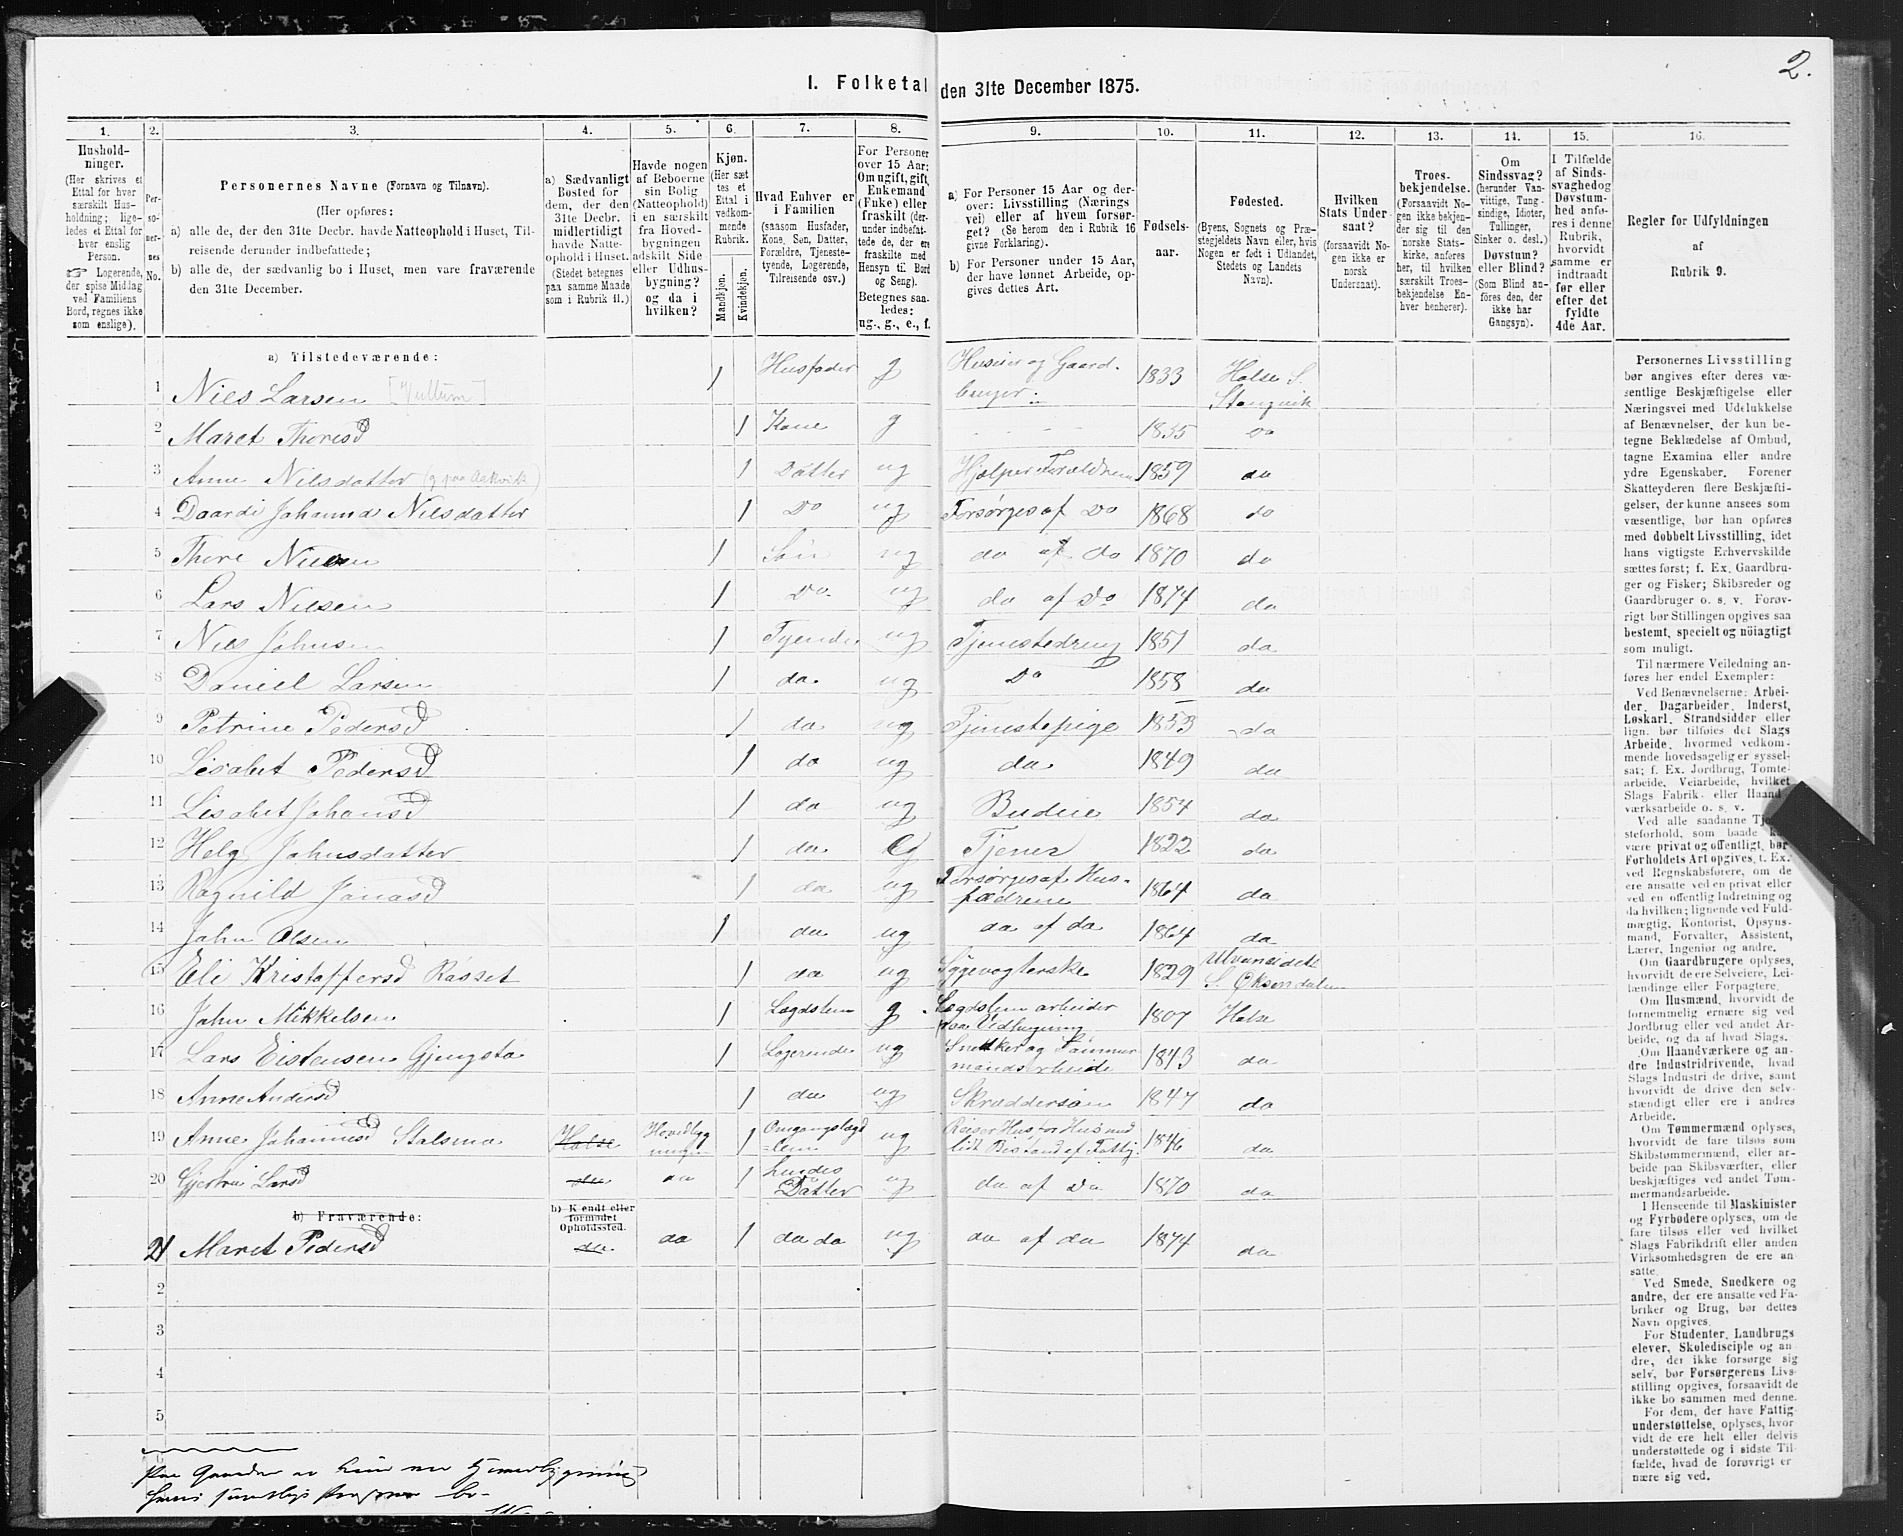 2.
I. Folketal den 31te December 1875.
1. 2. 3. 4. 5. 6. 7. 8. 9. 10. 11. 12. 13. 14. 15. 16.
Hushold-
ninger.
(Her skrives et
Ettal for hver
særskilt Hus-
holdning; lige-
ledes et Ettal for
hver enslig
Person.
☞ Logerende,
der spise Middag
ved Familiens
Bord, regnes ikke
som enslige).
Per-
so-
ner-
nes
No.
Personernes Navne (Fornavn og Tilnavn).
(Her opføres:
a) alle de, der den 31te Decbr. havde Natteophold i Huset, Til-
reisende derunder indbefattede;
b) alle de, der sædvanlig bo i Huset, men vare fraværende
den 31te December.
a) Sædvanligt
Bosted for
dem, der den
31te Decbr.
midlertidigt
havde Natte-
ophold i Huset.
(Stedet betegnes
paa samme Maade
som i Rubrik 11.)
Havde nogen
af Beboerne
sin Bolig
(Natteophold)
i en særskilt
fra Hoved-
bygningen
adskilt Side
eller Udhus-
bygning?
og da i
hvilken?
Kjøn.
(Her sæt
tes et
Ettal i
vedkom-
mende
Rubrik.
Mandkjøn.
Kvindekjøn.
Hvad Enhver er
i Familien
(saasom Husfader,
Kone, Søn, Datter,
Forældre, Tjeneste-
tyende, Logerende,
Tilreisende osv.)
For Personer
over 15 Aar:
Om ugift, gift,
Enkemand
(Enke) eller
fraskilt (der-
under indbefat-
tede de, der ere
fraskilte med
Hensyn til Bord
og Seng).
Betegnes saa-
ledes:
ug., g., e., f.
a) For Personer 15 Aar og der-
over: Livsstilling (Nærings
vei) eller af hvem forsør-
get? (Se herom den i Rubrik 16
givne Forklaring).
b) For Personer under 15 Aar,
der have lønnet Arbeide, op-
gives dettes Art.
Fødsels-
aar.
Fødested.
(Byens, Sognets og Præ-
stegjeldets Navn eller, hvis
Nogen er født i Udlandet,
Stedets og Landets
Navn).
Hvilken
Stats Under-
saat?
(forsaavidt No-
gen ikke er
norsk
Undersaat).
Troes-
bekjendelse.
(Forsaavidt No-
gen ikke bekjen-
der sig til den
norske Stats-
kirke, anføres
her, til hvilken
særskilt Troes-
bekjendelse En-
hver henhører).
Om
Sindssvag?
(herunder Van-
vittige, Tung-
sindige, Idioter,
Tullinger,
Sinker o. desl.)
Døvstum?
eller Blind?
(Som Blind an-
føres den, der
ikke har
Gangsyn).
I Tilfælde
af Sinds-
svaghedog
Døvstum-
hed anfø-
res i denne
Rubrik,
hvorvidt
samme er
indtraadt
før eller
efter det
fyldte
4de Aar.
Regler for Udfyldningen
af
Rubrik 9.
a) Tilstedeværende:
1 Niels Larsen 1 Husfader g Huseier og Gaard-
bruger 1833 Halse S.
Stangvik
2 Maret Thoresd 1 Kone g 1835 Do
3 Anne Nilsdatter 1 Datter ug Hjælper Forældrene 1859 do
4 Daardi Johanna Nilsdatter 1 Do ug Forsørges af Do 1868 do
5 Thore Nilsen 1 Søn ug do af do 1870 do
6 Lars Nilsen 1 Do ug do af Do 1874 do
7 Nils Johnsen 1 Tyende ug Tjenestedreng 1851 do
8 Daniel Larsen 1 do ug Do 1858 do
9 Petrine Pedersd 1 do ug Tjenestepige 1853 do
10 Lisabet Pedersd 1 do ug do 1849 do
11 Lisabet Johansd 1 do ug Budeie 1854 do
12 Helg Johnsdatter 1 do Tjener 1822 do
13 Ragnild Jonasd 1 do ug Forsørges af Hus-
fædrene 1864 do
14 John Olsen 1 do ug do af do 1864 do
15 Eli Kristoffersd Røsset 1 do ug Sygevogterske 1829
S. Øksendalen
16 John Mikkelsen 1 Lægdslem g Lægdslem arbeider
paa Vedhugning 1807 Halse
17 Lars Eistensen Gjengstø 1 Logerende ug Snekker og Tømmer
mandsarbeide 1843 do
18 Anne Andersd 1 do ug Skræddersøm 1847 do
19 Anne Johannesd Stalsmo Halse Hovedbyg
ningen 1 Omgangslægd
-lem ug Reiser Hus for Hus med
lidt Bistand af Fattig. 1846 do
20 Gjertru Larsd do do 1 hendes
Datter ug do af Do 1870 do
b) Fraværende: b) Kjendt eller
formodet
Opholdssted.
21 Maret Pedersd do do 1 do do ug do af do 1874 do
2
3
4
5
Personernes Livsstilling
bør angives efter deres væ-
sentlige Beskjæftigelse eller
Næringsvei med Udelukkelse
af Benævnelser, der kun be-
tegne Beklædelse af Ombud,
tagne Examina eller andre
ydre Egenskaber. Forener
Skatteyderen flere Beskjæfti-
gelser, der kunne ansees som
væsentlige, bør han opføres
med dobbelt Livsstilling, idet
hans vigtigste Erhvervskilde
sættes først; f. Ex. Gaardbru-
ger og Fisker; Skibsreder og
Gaardbruger o. s. v. Forøv-
rigt bør Stillingen opgives saa
bestemt, specielt og nöiagtigt
som muligt.
Til nærmere Veiledning an-
føres her endel Exempler:
Ved Benævnelserne: Arbei-
der, Dagarbeider, Inderst,
Løskarl, Strandsidder eller
lign. bør tilføies det Slags
Arbeide, hvormed vedkom-
mende hovedsagelig er syssel-
sat; f. Ex. Jordbrug, Tomte-
arbeide, Veiarbeide, hvilket
Slags Fabrik- eller Haand-
værksarbeide o. s. v.
Ved alle saadanne Tje-
steforhold, som baade kan
være privat og offentligt, bør
Forholdets Art opgives, f. Ex.
ved Regnskabsførere, om de
ere ansatte ved en privat eller
ved en offentlig Indretning og
da hvilken; lignende ved Fuld-
mægtig, Kontorist, Opsyns-
mand, Forvalter, Assistent,
Lærer, Ingeniør og andre.
Om Gaardbrugere oplyses,
hvorvidt de ere Selveiere, Lei-
lændinge eller Forpagtere.
Om Husmænd, hvorvidt de
fornemmelig ernære sig ved
Jordbrug eller ved andet Ar-
beide, og da af hvad Slags.
Om Haandværkere og an-
dre Industridrivende, hvad
Slags Industri de drive, samt
hvorvidt de drive den selv-
stændigt eller ere i andres
Arbeide.
Om Tømmermænd oplyses,
hvorvidt de fare tilsøs som
Skibstømmermænd, eller ar-
beide paa Skibsværfter, eller
beskjæftiges ved andet Tøm-
mermandsarbeide.
I Henseende til Maskinister
og Fyrbødere oplyses, om de
fare tilsøs eller ved hvilket
Slags Fabrikdrift eller anden
Virksomhedsgren de ere an-
satte.
Ved Smede, Snedkere og
andre, der ere ansatte ved Fa-
briker og Brug, bør dettes
Navn opgives.
For Studenter, Landbrugs
elever, Skoledisciple og an-
dre, der ikke forsørge sig
selv, bør Forsørgerens Livs-
stilling opgives, forsaavidt de
ikke bo sammen med denne.
For dem, der have Fattig-
understøttelse, oplyses, hvor
vidt de ere helt eller delvis
understøttede og i sidste Til-
fælde, hvad de forøvrigt er
nære sig ved.